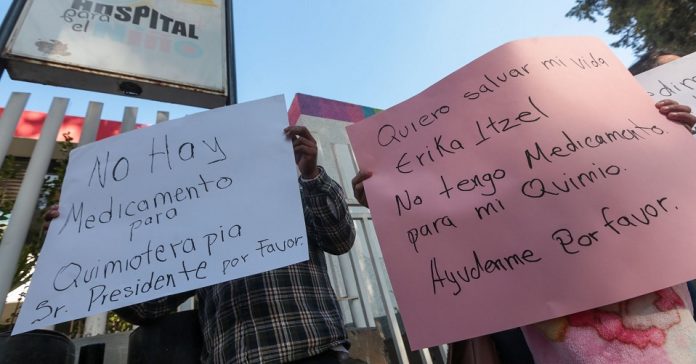 HOSPITAL
para
el
No Hay
Medicamento
para
Quimioterapia
Sr. Presidente por Favor.
Quiero salvar mi vida
Erika Itzel
No tengo Medicamento
para mi Quimio.
Ayudenme Porfavor.